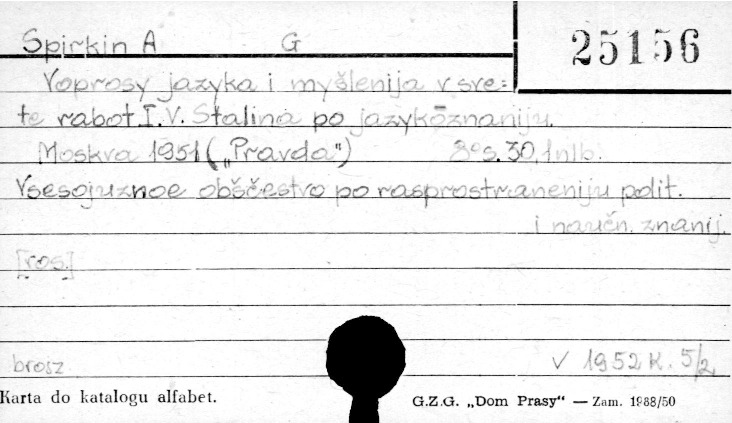 Spirkin A G
25156
Voprosy jazyka i myšlenija v sve=
te rabot I.V. Stalina po jazykoznaniju.
Moskva 1951 („Pravda") 8° s. 30, 1nlb.
Vsesojuznoe obščestvo po rasprostraneniju polit.
i naučn. znanij.
[ros.]
brosz. v 1952 K. 5/2
Karta do katalogu alfabet. G.Z.G. „Dom Prasy" — Zam. 1988/50